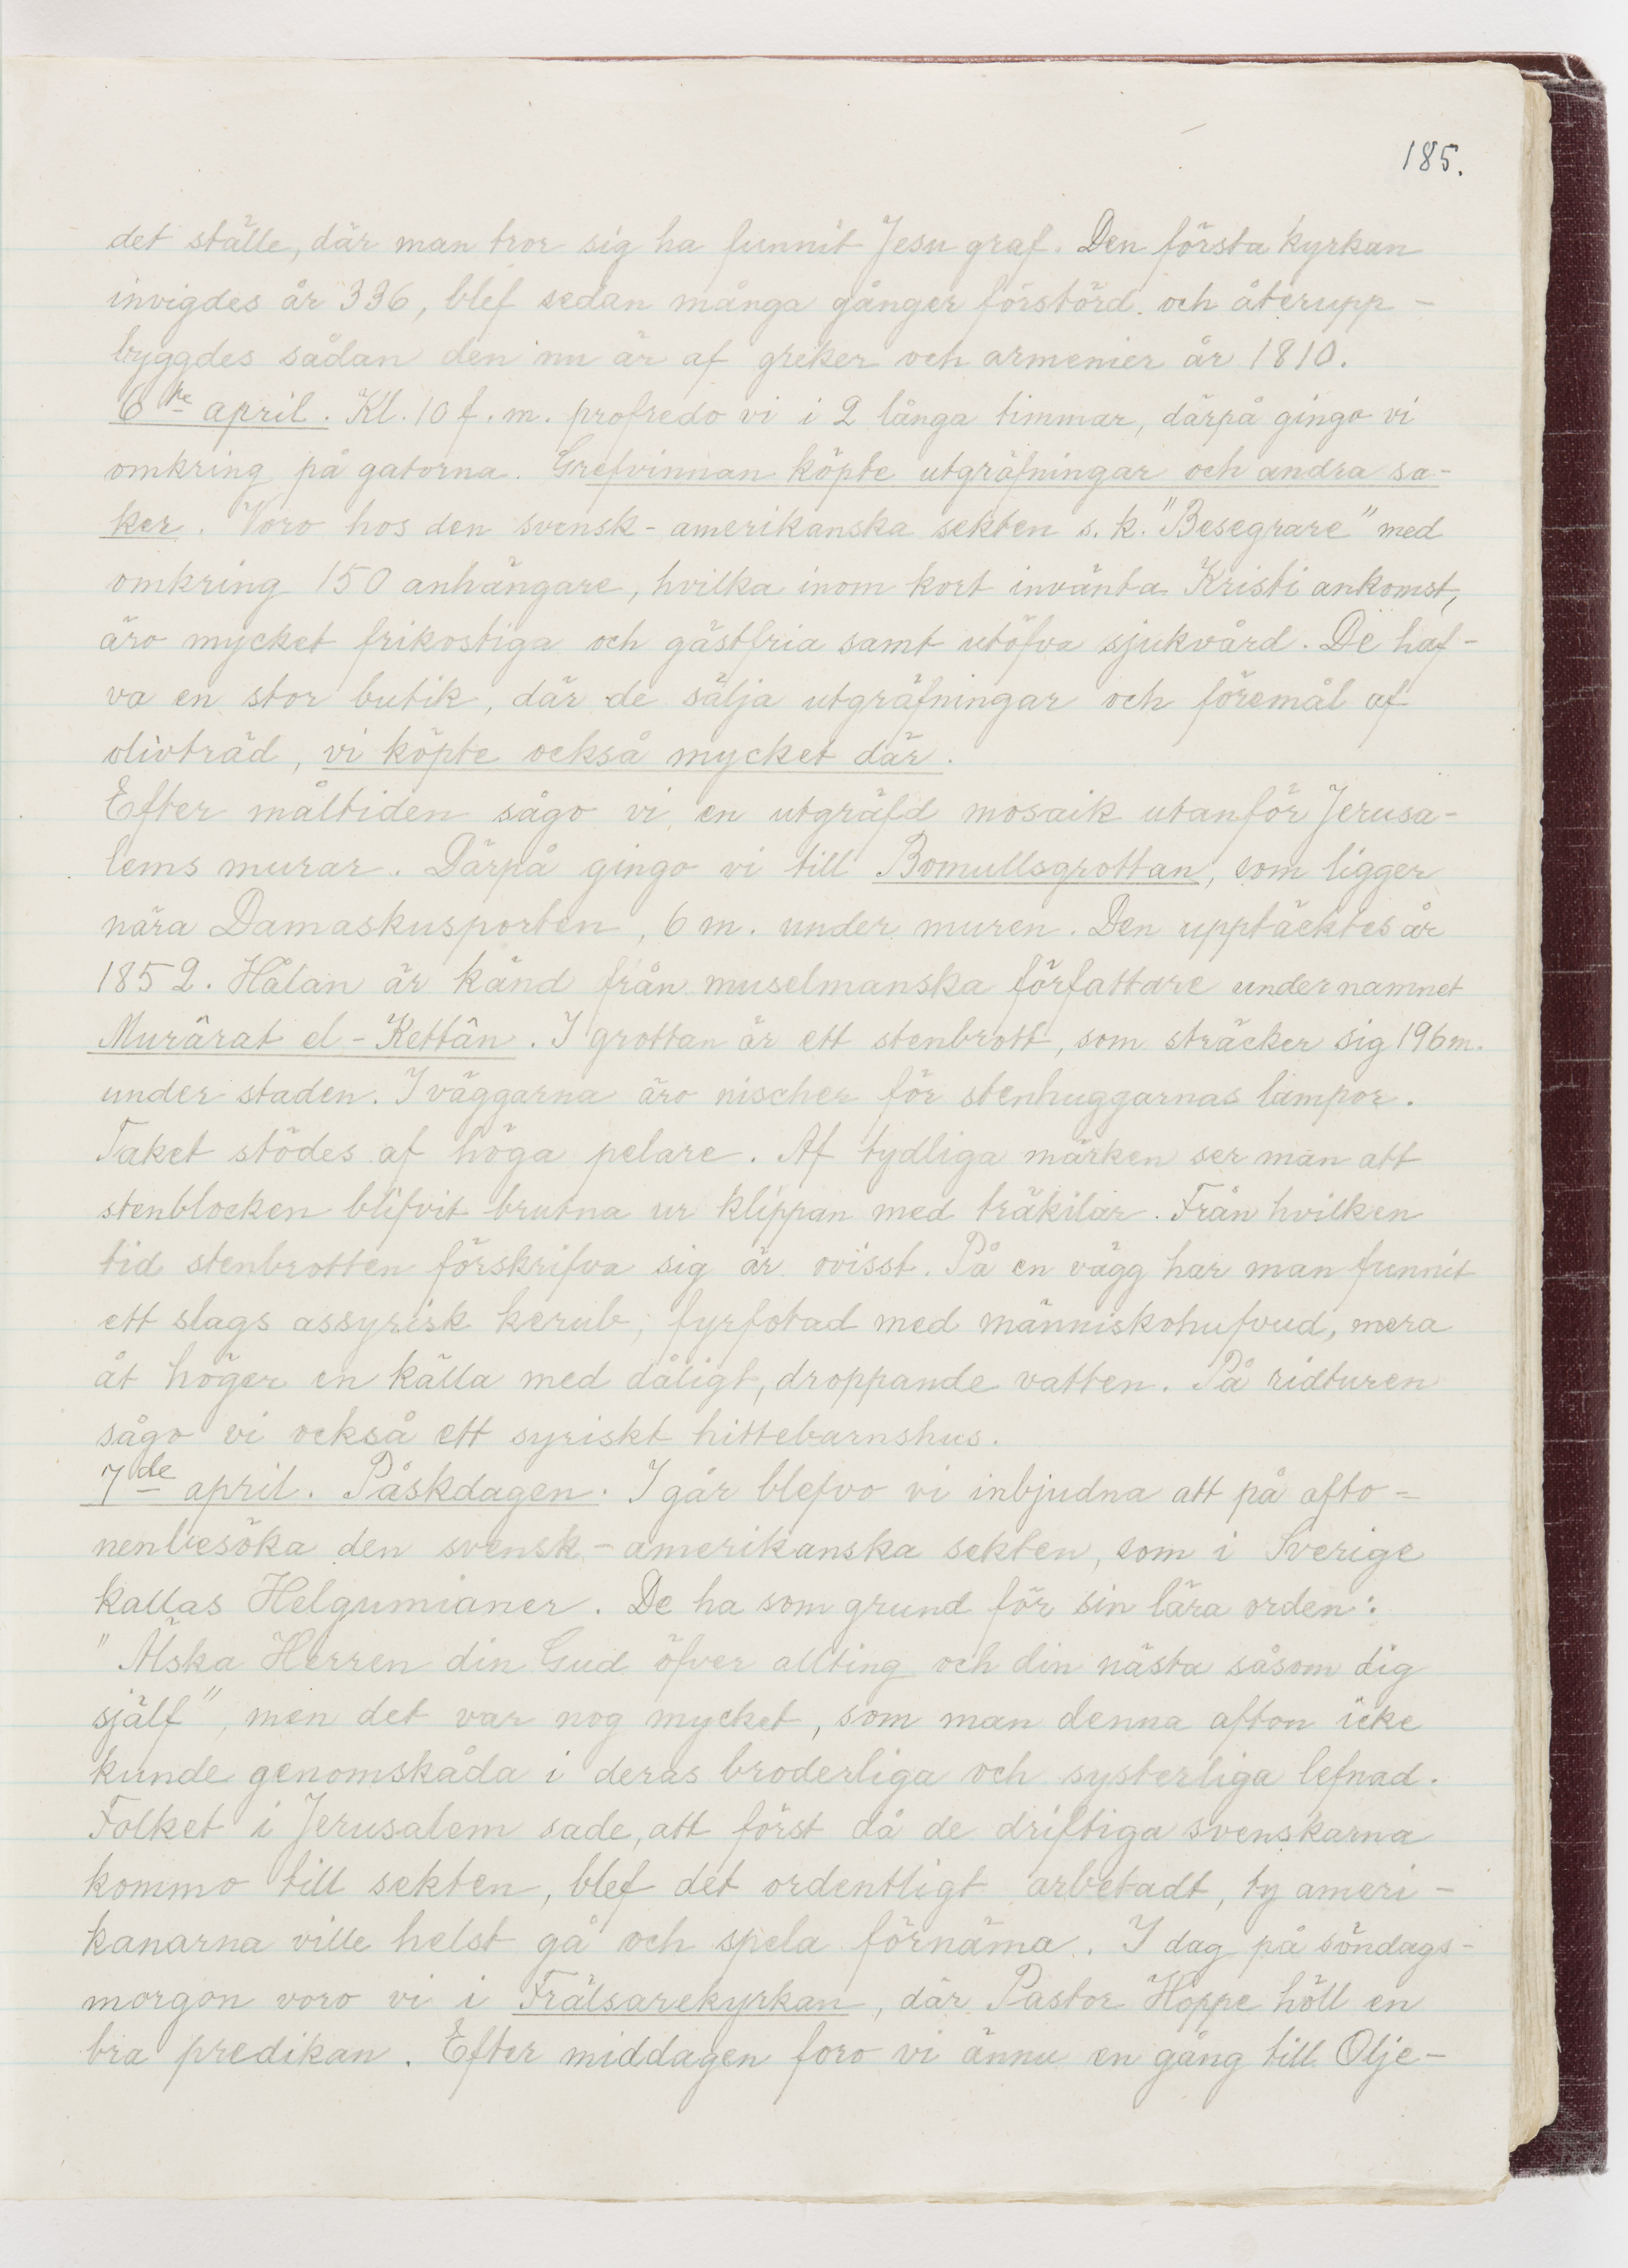 185.
det ställe, där man tror sig ha funnit Jesu graf. Den första kyrkan
invigdes år 336, blef sedan många gånger förstörd och återupp-
byggdes sådan den nu är af greker och armenier år 1810.
6te april. Kl. 10 f. m. profredo vi i 2 långa timmar, därpå gingo vi
omkring på gatorna. Grefvinnan köpte utgräfningar och andra sa-
ker. Voro hos den svensk-amerikanska sekten s. k. "Besegrare" med
omkring 150 anhängare, hvilka inom kort invänta Kristi ankomst,
äro mycket frikostiga och gästfria samt utöfva sjukvård. De haf-
va en stor butik, där de sälja utgräfningar och föremål af
olivträd, vi köpte också mycket där.
Efter måltiden sågo vi en utgräfd mosaik utanför Jerusa-
lems murar. Därpå gingo vi till Bomullsgrottan, som ligger
nära Damaskusporten, 6 m. under muren. Den upptäcktes år
1852. Hålan är känd från muselmanska författare under namnet
Murârat el-Kettân. I grottan är ett stenbrott, som sträcker sig 196 m.
under staden. I väggarna äro nischer för stenhuggarnas lampor.
Taket stödes af höga pelare. Af tydliga märken ser man att
stenblocken blifvit brutna ur klippan med träkilar. Från hvilken
tid stenbrotten förskrifva sig är ovisst. På en vägg har man funnit
ett slags assyrisk kerub, fyrfotad med människohufvud, mera
åt höger en källa med dåligt, droppande vatten. På ridturen
sågo vi också ett syriskt hittebarnshus.
7de april. Påskdagen. I går blefvo vi inbjudna att på afto-
nen besöka den svensk-amerikanska sekten, som i Sverige
kallas Helgumianer. De ha som grund för sin lära orden:
"Älska Herren din Gud öfver allting och din nästa såsom dig
själf", men det var nog mycket, som man denna afton icke
kunde genomskåda i deras broderliga och systerliga lefnad.
Folket i Jerusalem sade, att först då de driftiga svenskarna
kommo till sekten, blef det ordentligt arbetadt, ty ameri-
kanarna ville helst gå och spela förnäma. I dag på söndags-
morgon voro vi i Frälsarekyrkan, där Pastor Hoppe höll en
bra predikan. Efter middagen foro vi ännu en gång till Olje-